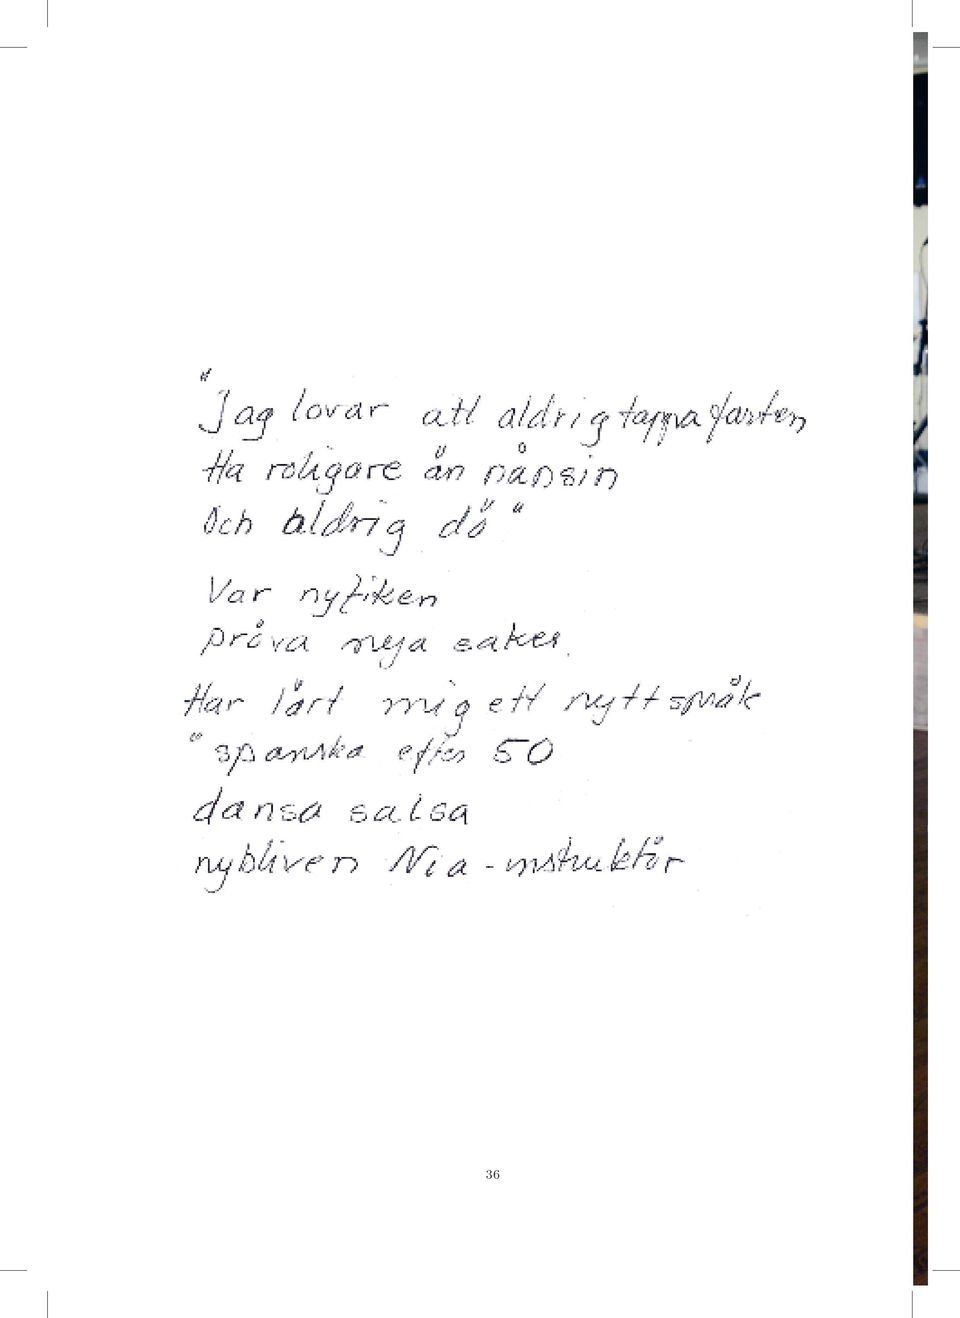 "Jag lovar att aldrig tappa farten
Ha roligare än nånsin
Och aldrig dö"
Var nyfiken
pröva nya saker.
Har lärt mig ett nytt språk
"spanska efter 50
dansa salsa
nybliven Nia-instruktör
36